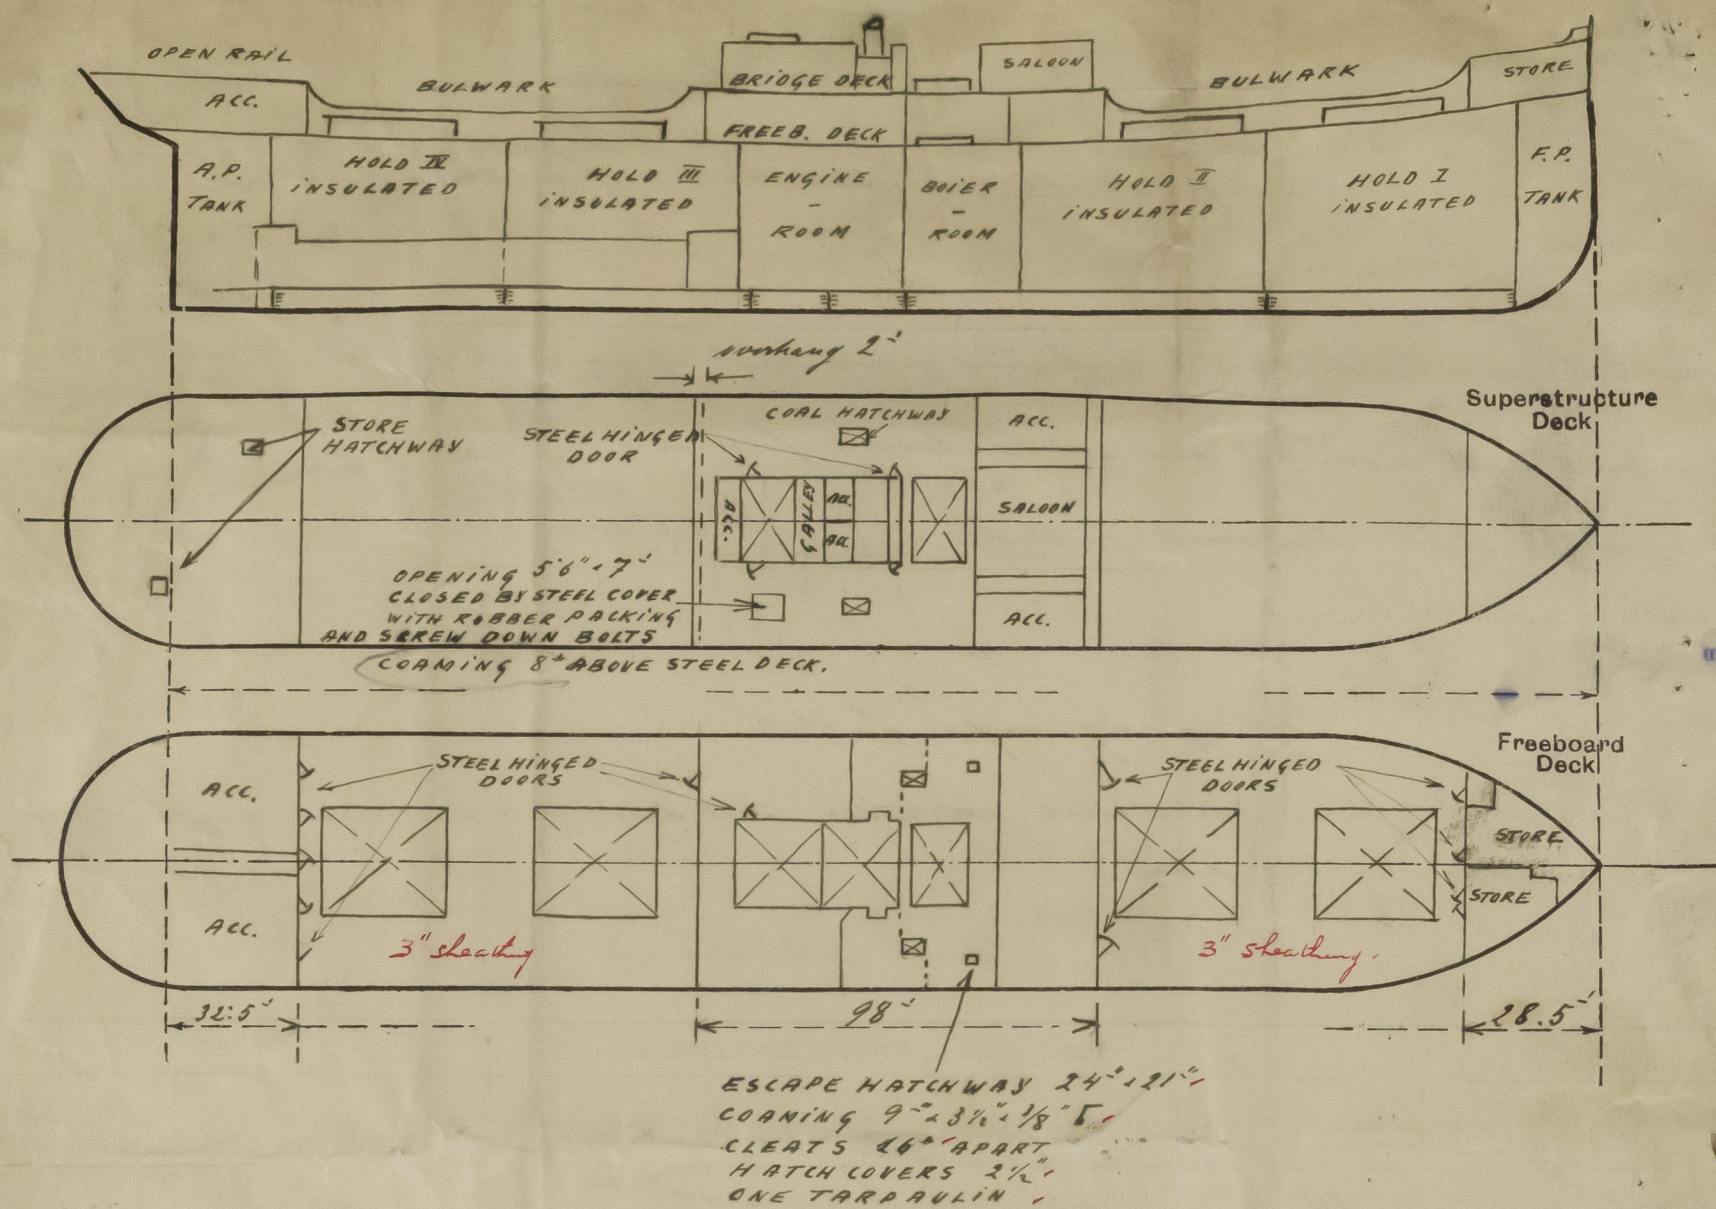 OPEN RAIL
ACC.
BULWARK
BRIDGE DECK
SALOON
BULWARK
STORE
FREEB. DECK
A.P.
TANK
HOLD IV
INSULATED
HOLD III
INSULATED
ENGINE
-
ROOM
BOIER
-
ROOM
HOLD II
INSULATED
HOLD I
INSULATED
F.P.
TANK
overhang 2'
Superstructure
Deck
STORE
HATCHWAY
STEEL HINGED
DOOR
COAL HATCHWAY
ACC.
ACC.
GALLEY
ACC
ACC
SALOON
ACC.
OPENING 5'6" x 7'
CLOSED BY STEEL COVER
WITH RUBBER PACKING
AND SCREW DOWN BOLTS
COAMING 8" ABOVE STEEL DECK.
Freeboard
Deck
ACC.
STEEL HINGED
DOORS
STEEL HINGED
DOORS
STORE
STORE
ACC.
3" sheathing
3" sheathing.
32.5'
98'
28.5'
ESCAPE HATCHWAY 24" x 21"
COAMING 9" x 3½" x 3/8"
CLEATS 26" APART
HATCH COVERS 2½"
ONE TARPAULIN